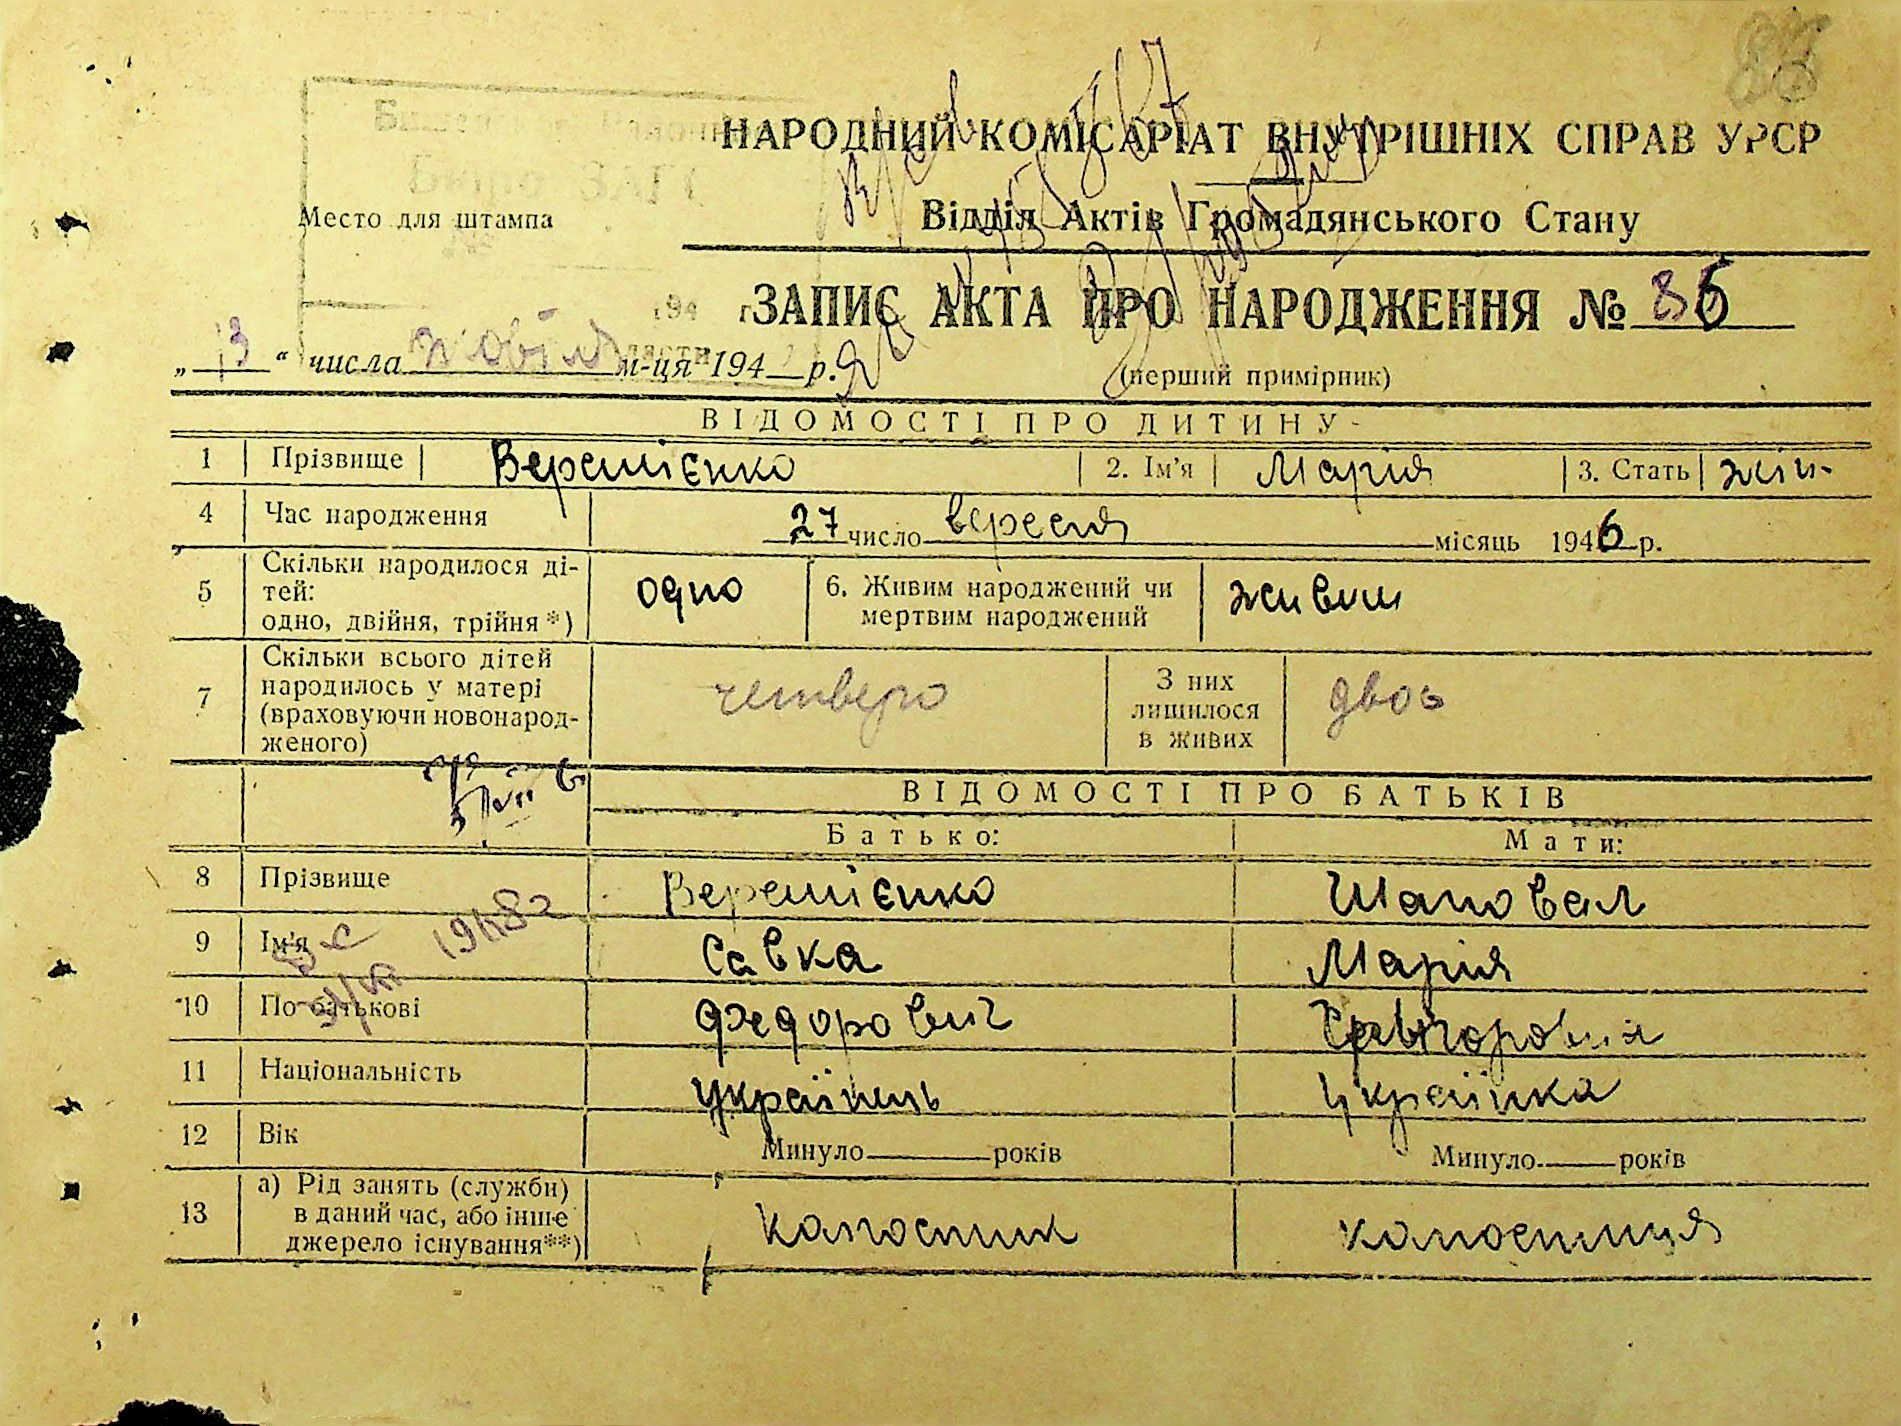 НАРОДНИЙ КОМІСАРІАТ ВНУТРІШНІХ СПРАВ УРСР
Бюро ЗАГС
Место для штампа
Відділ Актів Громадянського Стану
194 г.
ЗАПИС АКТА ПРО НАРОДЖЕННЯ № 86
„ 13 “ числа м-ця 194 р.
(перший примірник)
ВІДОМОСТІ ПРО ДИТИНУ
1 Прізвище Веремієнко 2. Ім'я Марія 3. Стать жін.
4 Час народження 27 число вересня місяць 1946 р.
5 Скільки народилося ді-
тей:
одно, двійня, трійня *)
одно
6. Живим народжений чи
мертвим народжений
живим
7 Скільки всього дітей
народилось у матері
(враховуючи новонарод-
женого)
четверо
З них
лишилося
в живих
двоє
ВІДОМОСТІ ПРО БАТЬКІВ
Батько: Мати:
8 Прізвище Веремієнко Шаповал
9 Ім'я Савка Марія
1948
10 По батькові Федорович
11 Національність українець українка
12 Вік Минуло років Минуло років
13 а) Рід занять (служби)
в даний час, або інше
джерело існування**)